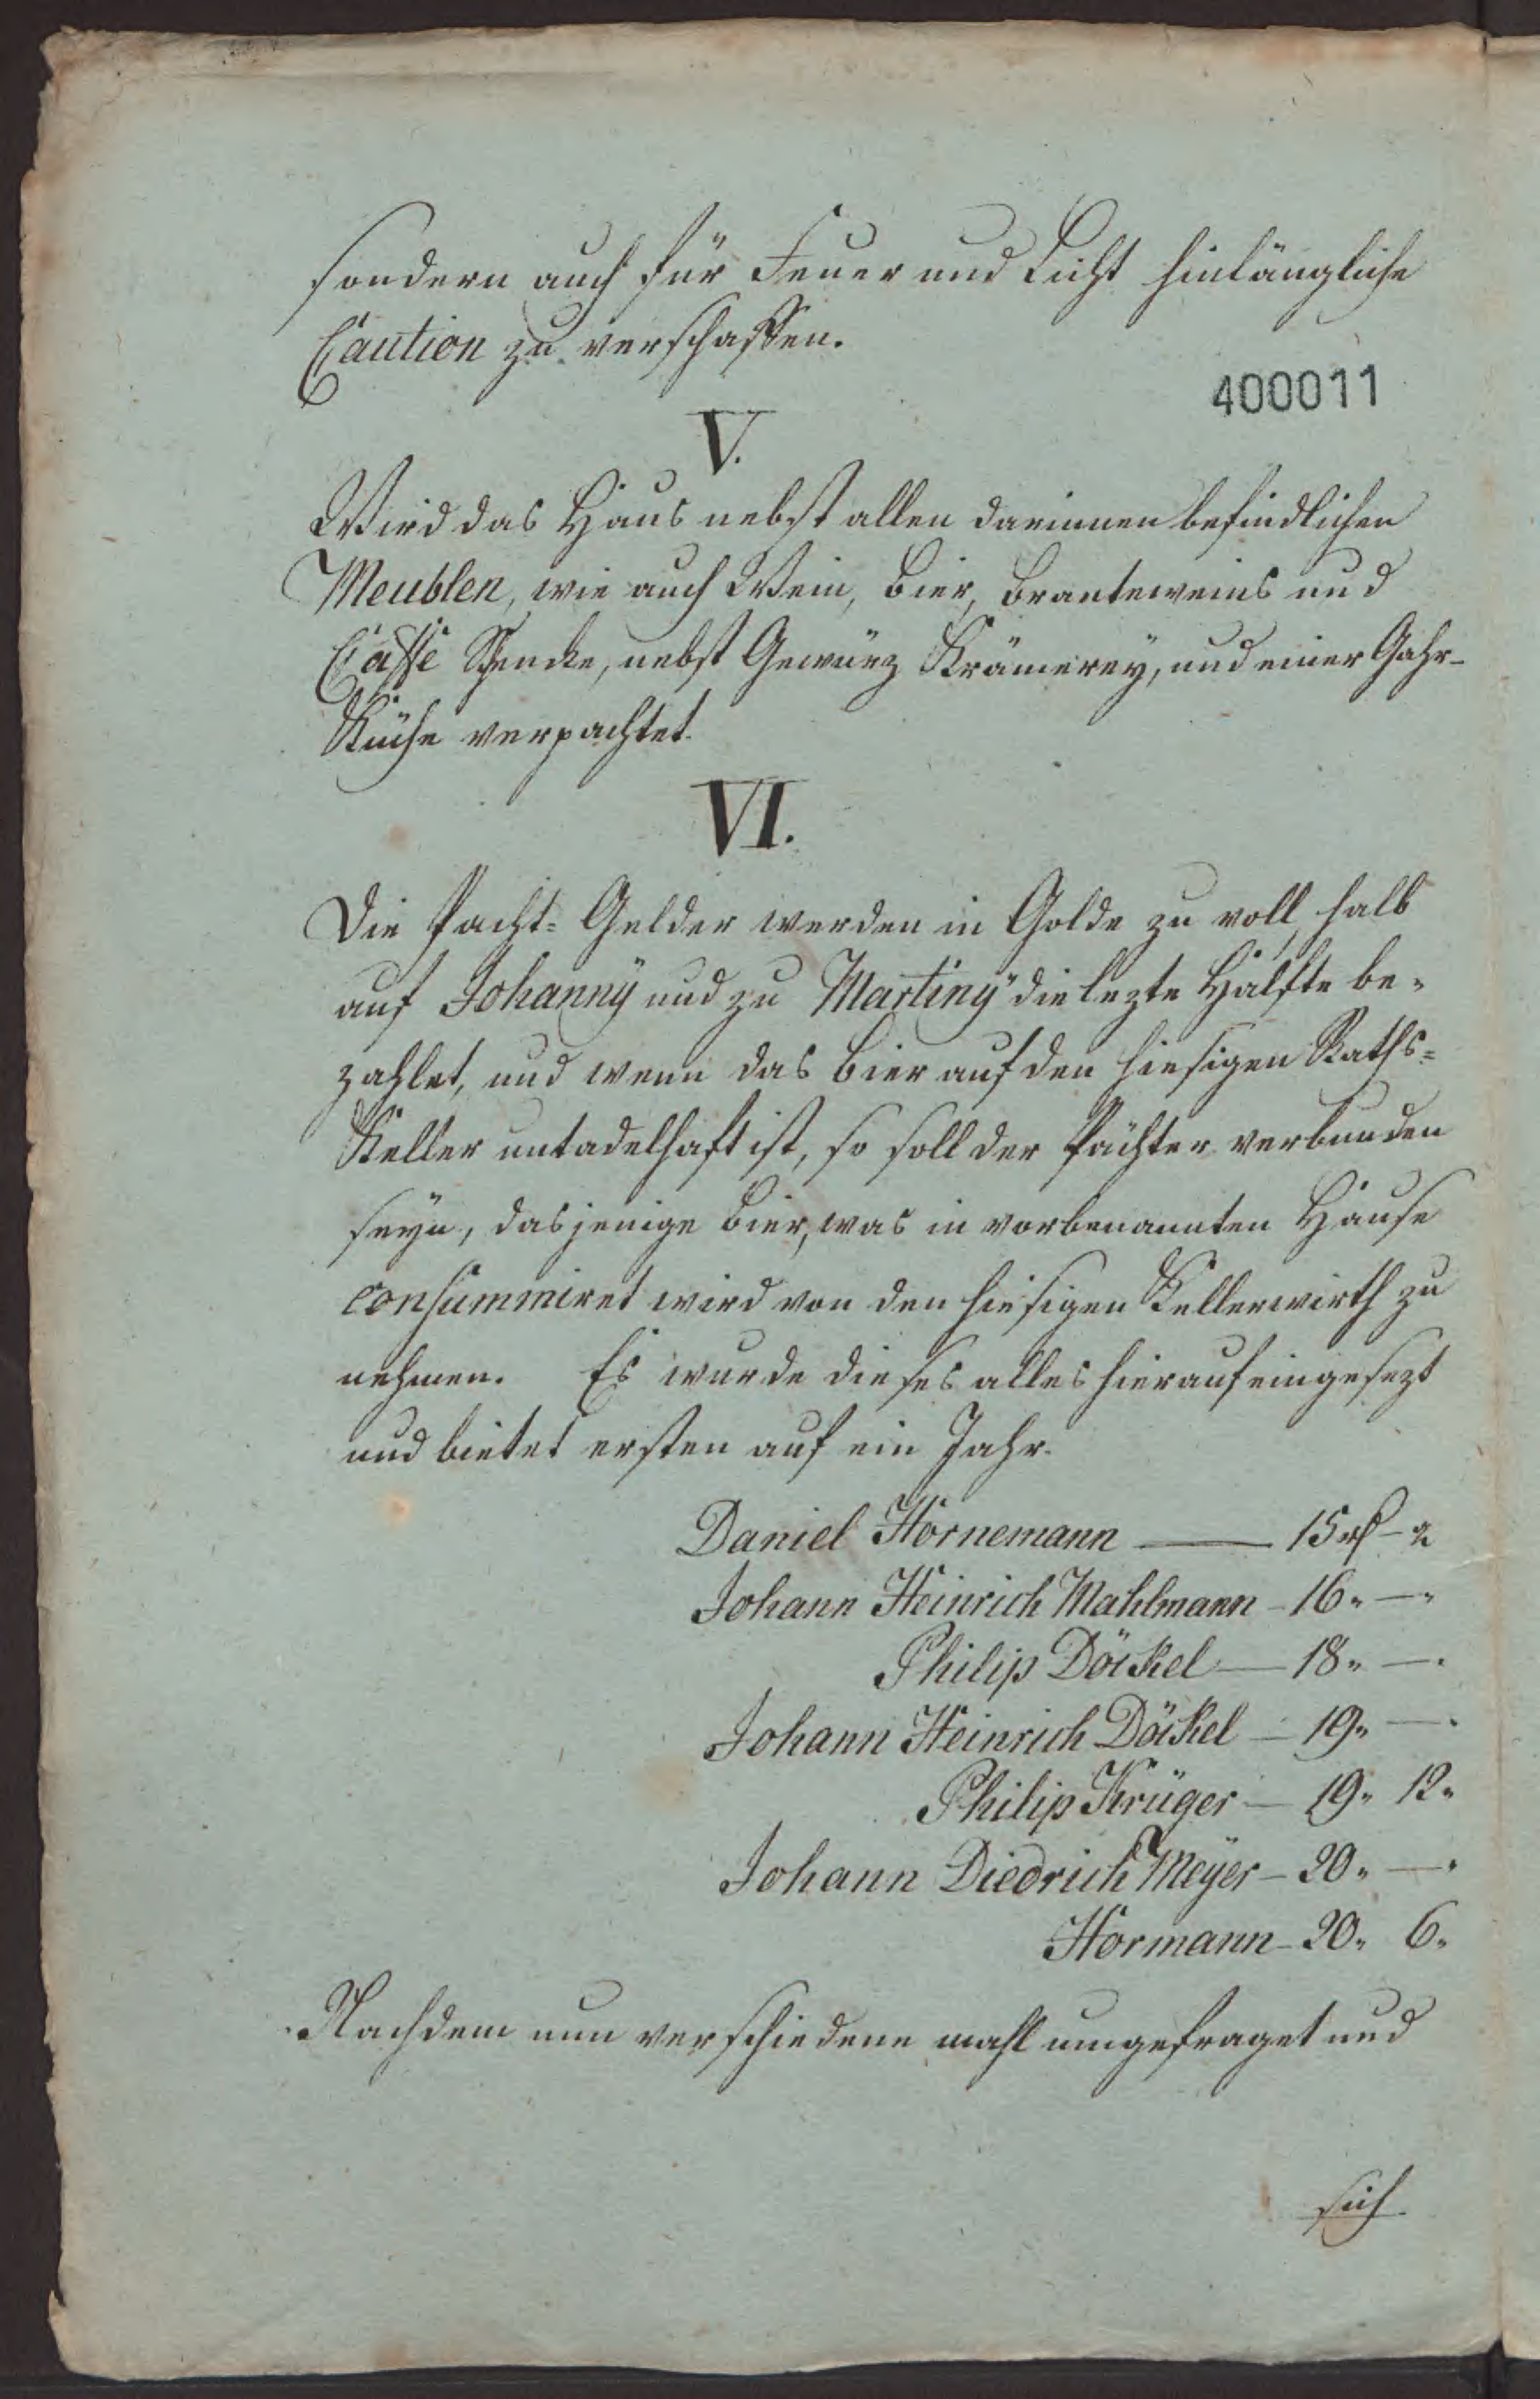 sondern auch für Feuer und Licht hinlängliche
Caution zu verschaffen.
400011
V.
Wird das Haus nebst allen darinnen befindlichen
Meublen, wie auch Wein, Bier, Branteweins und
Caffé Schencke, nebst Gewürz Krämerey, und einer Gahr-
Küche verpachtet.
VI.
Die Pacht= Gelder werden in Golde zu voll, halb
auf Johanny und zu Martiny die lezte Hälfte be-
zahlet, und wenn das Bier auf den hiesigen Raths=
Keller untadelhaft ist, so soll der Pächter verbunden
seyn, dasjenige Bier, was in vorbenannten Hause
consummiret wird von den hiesigen Kellerwirth zu
nehmen. Es wurde dieses alles hierauf eingesezt
und bietet ersten auf ein Jahr.
Daniel Hornemann — 15 rthlr –
Johann Heinrich Mahlmann – 16 " — "
Philip Döckel — 18 " — "
Johann Heinrich Döckel — 19 " — "
Philip Krüger — 19 " 12 "
Johann Diedrich Meÿer – 20 " — "
Hormann – 20 " 6 "
Nachdem nun verschiedene mahl umgefraget und
sich